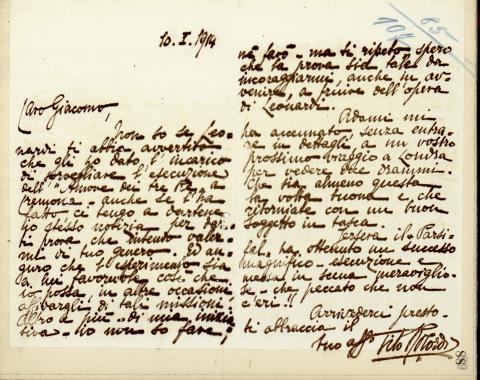 10. I. 1914
Caro Giacomo,
Non so se Leo-
nardi ti abbia avvertito
che gli ho dato l'incarico
di sorvegliare l'esecuzione
dell'"Amore dei tre Re" a
Cremona - anche se l'ha
fatto ci tengo a dartene
io stesso notizia per dar-
ti prova che intendo valer-
mi di tuo genero. Ed au-
guro che l'esperimento sia
da lui favorevole così che
io possa, in altre occasioni,
affidargli di tali missioni.
Altro a più - di mia inizia-
tiva - io non so fare,
nè farò - ma ti ripeto, spero
che la prova sia tale da
incoraggiarmi, anche in av-
venire, a fruire dell'opera
di Leonardi.
Adami mi
ha accennato, senza entra-
re in dettagli a un vostro
prossimo viaggio a Londra
per vedere due drammi.
Che sia almeno questa
la volta buona e che
ritorniate con un buon
soggetto in tasca.
Iersera il Parsi-
fal ha ottenuto un successo
magnifico - esecuzione e
messa in scena meraviglio-
se - che peccato che non
c'eri!!
Arrivederci presto -
ti abbraccia il
tuo aff Tito Ricordi
85
104